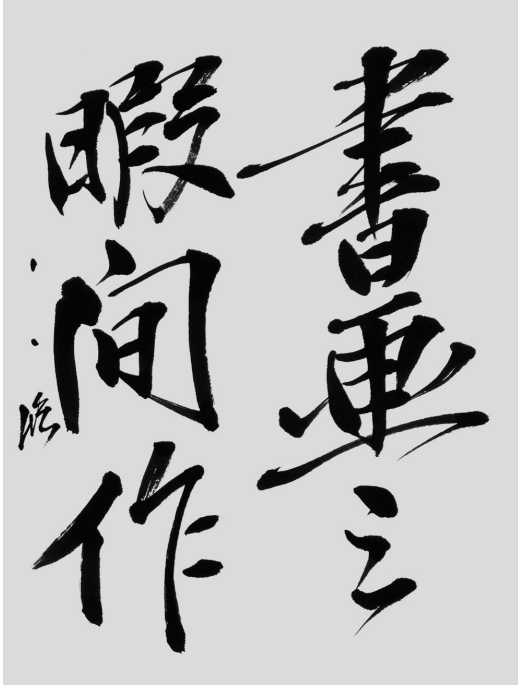 書画之
暇间作